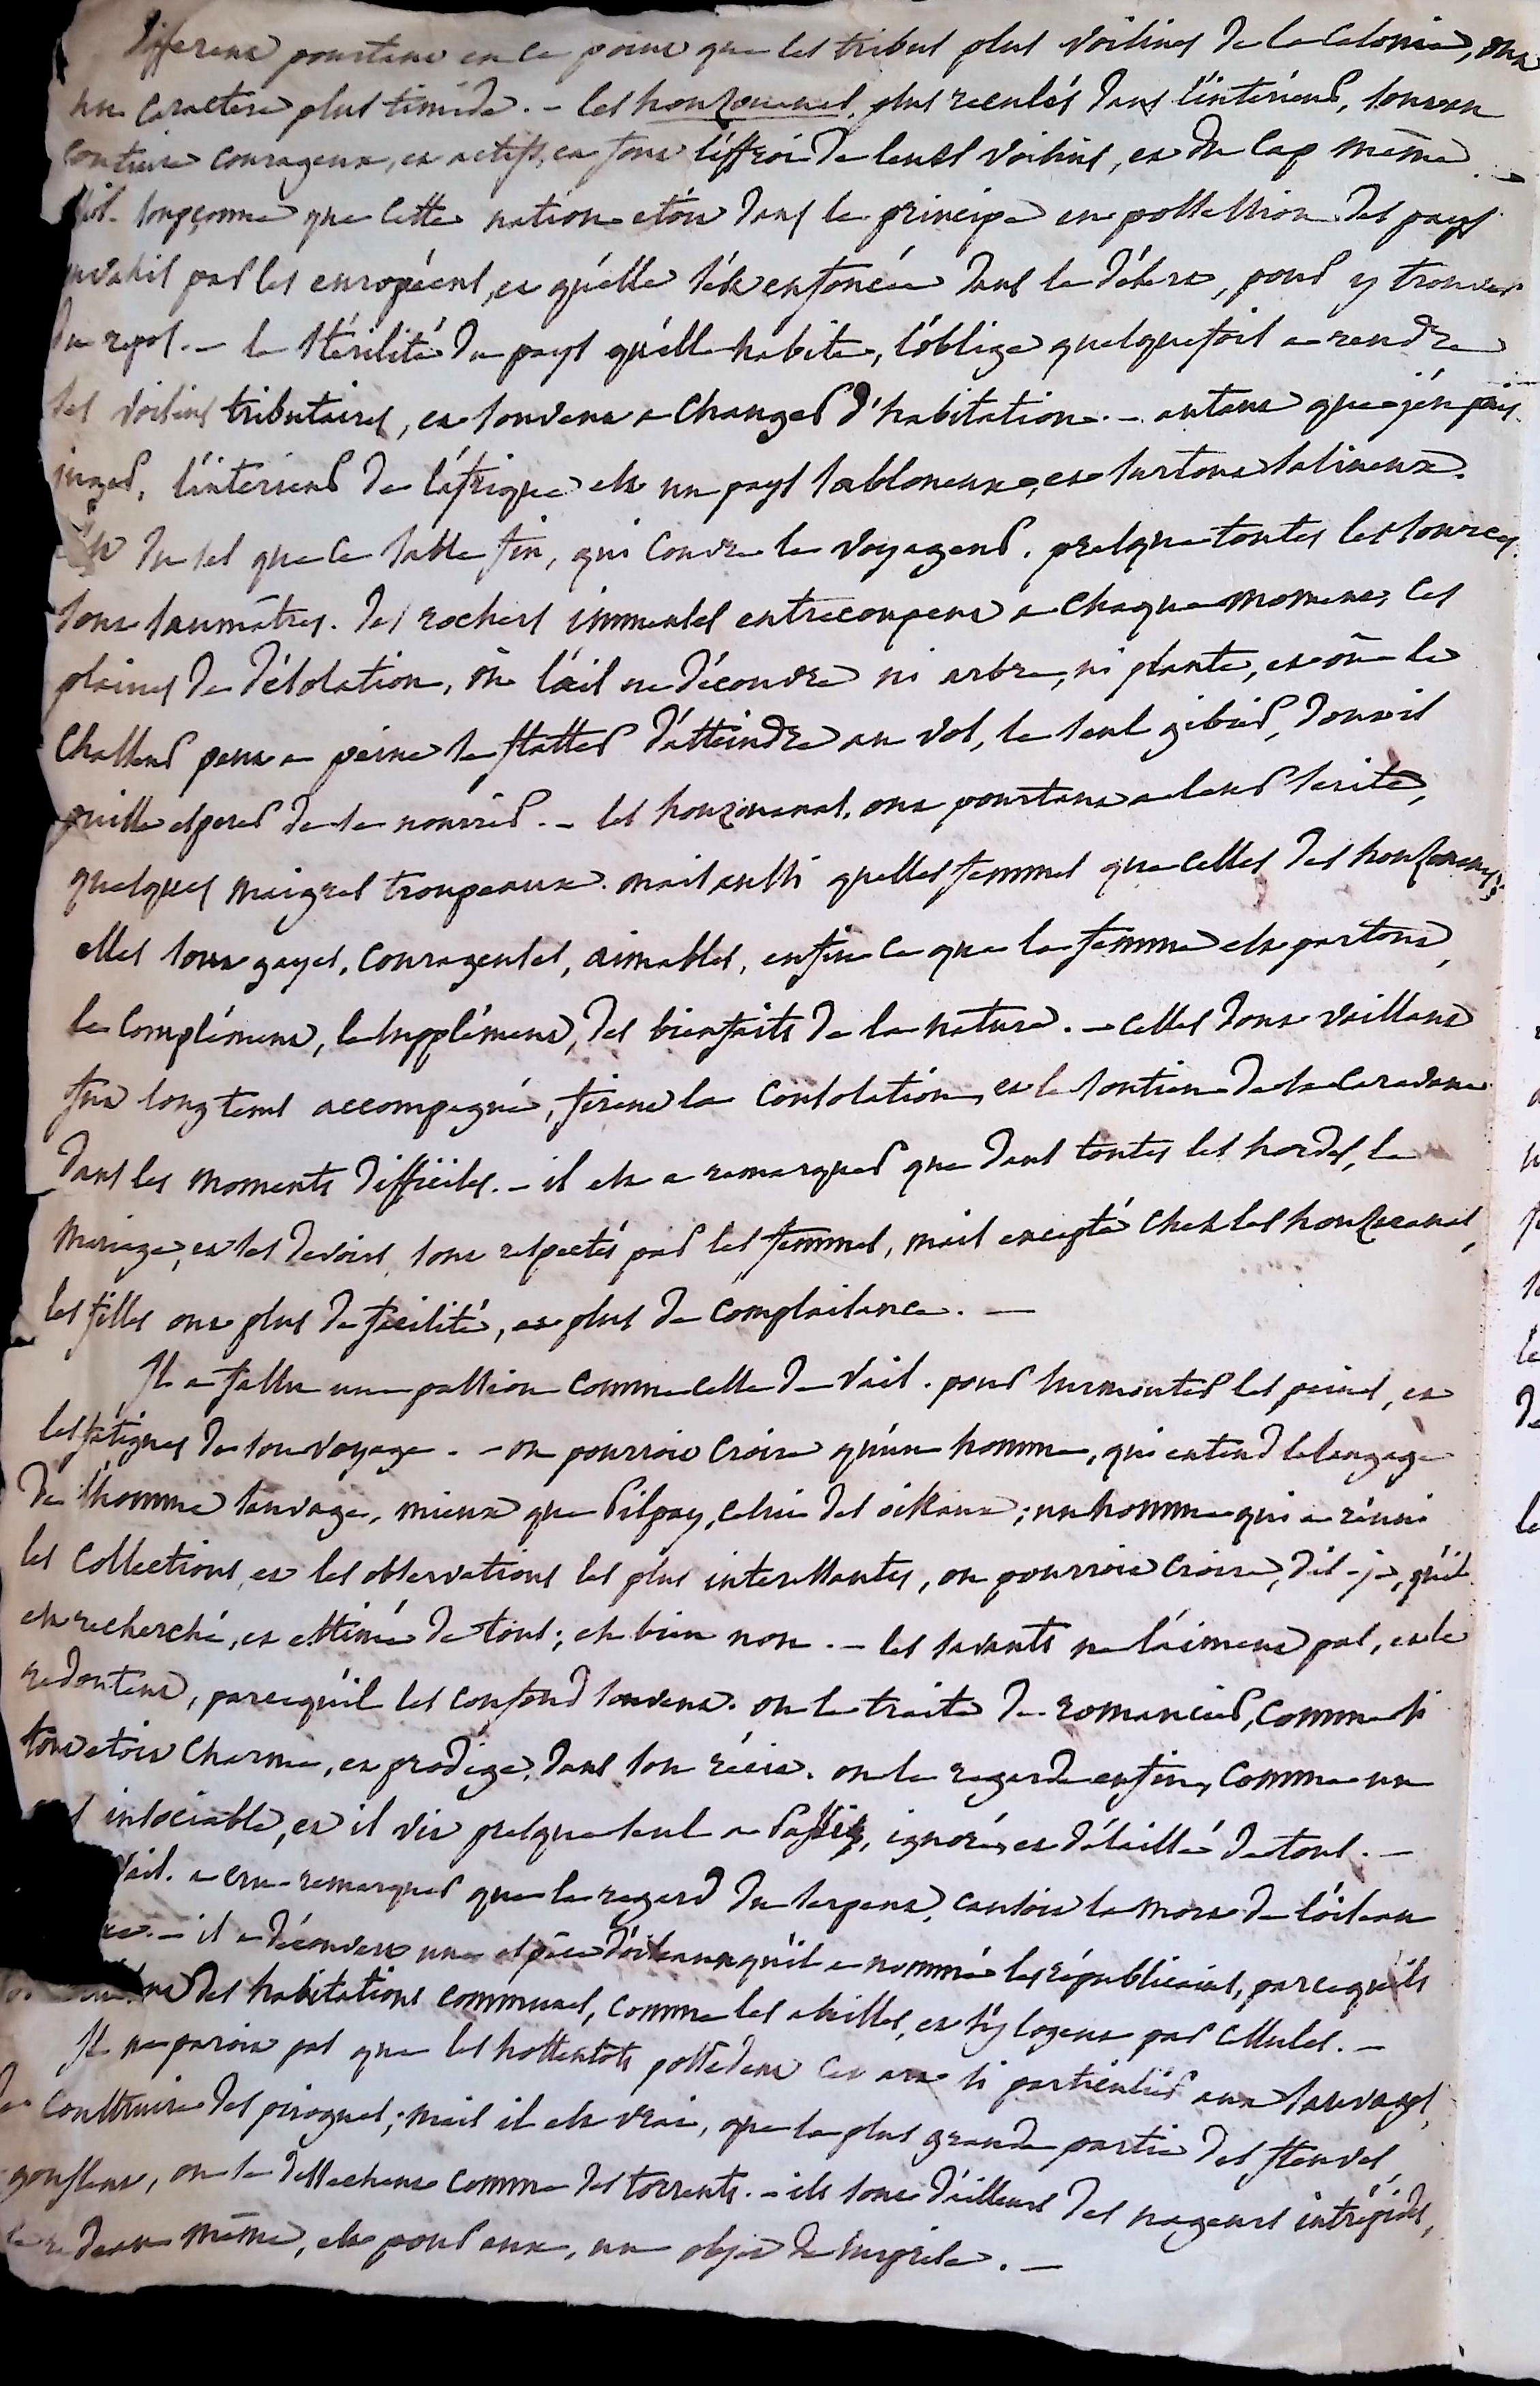 différens pourtant en ce point que les tribus plus voisines de la Colonie, ont
un caractere plus timide. – les houzouanas, plus reculés dans l'intérieur, sont au
contraire courageux, et actifs, et font l'éffroi de leurs voisins, et du Cap même.
Vail. soupçonne que cette nation étoit dans le principe en possession des pays
envahis par les européens, et qu'elle s'est enfoncée dans le désert, pour y trouver
du repos. – la stérilité du pays qu'elle habite, l'oblige quelquefois a rendre
ses voisins tributaires, et souvent a changer d'habitation. – autant que j'en puis
juger, l'intérieur de l'afrique est un pays sabloneux, et surtout salineux.
du sel que ce sable fin, qui couvre le voyageur. presque toutes les sources
sont saumâtres. des rochers immenses entrecoupent a chaque moment, ces
plaines de désolation, où l'œil ne découvre ni arbre, ni plante, et où le
chasseur peut a peine se flatter d'atteindre au vol, le seul gibier, dont il
puisse esperer de se nourrir. – les houzouanas, ont pourtant a leur suite,
quelques maigres troupeaux. mais aussi quelles femmes que celles des houzouanas!
elles sont gayes, courageuses, aimables, enfin ce que la femme est partout,
le complément, le supplément, des bienfaits de la nature. – celles dont vaillant
fut longtems accompagné, firent la consolation, et le soutien de sa caravane
dans les moments difficiles. – il est a remarquer que dans toutes les hordes, le
mariage, et ses devoirs, sont respectés par les femmes, mais excepté chez les houzouanas,
les filles ont plus de facilité, et plus de complaisance. —
Il a fallu une passion comme celle de Vail. pour surmonter les peines, et
les fatigues de son voyage. – on pourroit croire qu'un homme, qui entend le langage
de l'homme sauvage, mieux que Pilpay, celui des oiseaux; un homme qui a réuni
les collections, et les observations les plus interessantes, on pourroit croire, dis-je, qu'il
est recherché, et estimé de tous; eh bien non. – les savants ne l'aiment pas, et le
redoutent, parcequ'il les confond souvent. on le traite de romancier, comme si
tout etoit charme, et prodige, dans son récit. on le regarde enfin, comme un
insociable, et il vit presque seul a Paris, ignoré, et délaissé de tous. –
Vail. a cru remarquer que le regard du serpent, causoit la mort de l'oiseau
– il a découvert une espèce d'oiseaux qu'il a nommé les républicains, parcequ'ils
des habitations communes, comme les abeilles, et s'y logent par cellules. –
Il ne paroit pas que les hottentots possedent cet art si particulier aux sauvages,
de construire des pirogues; mais il est vrai, que la plus grande partie des fleuves,
gonflent, ou se dessechent comme des torrents. – ils sont d'ailleurs des nageurs intrépides,
même, est pour eux, un objet de surprise. —